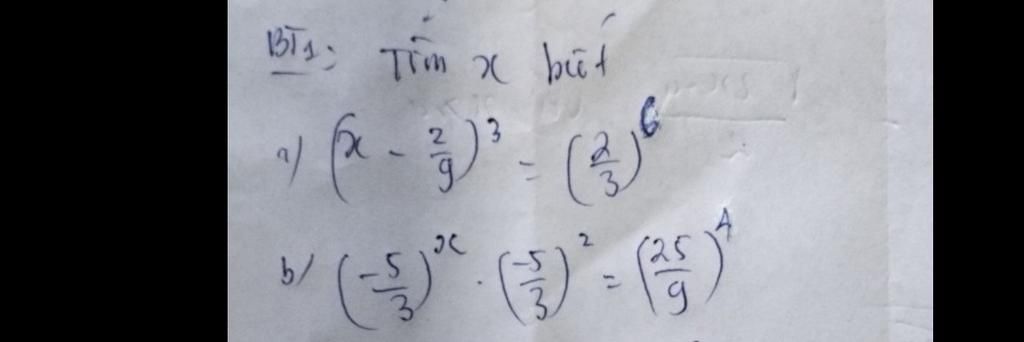 BT1: Tìm x biết
a) (x - 2/9)^3 = (2/3)^6
b/ (-5/3)^x . (-5/3)^2 = (25/9)^4